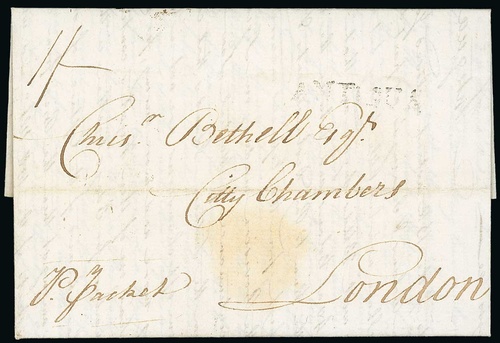 1/-
ANTIGUA
Chris.r Bethell Esq.r
Citty Chambers
London
P.r Packet